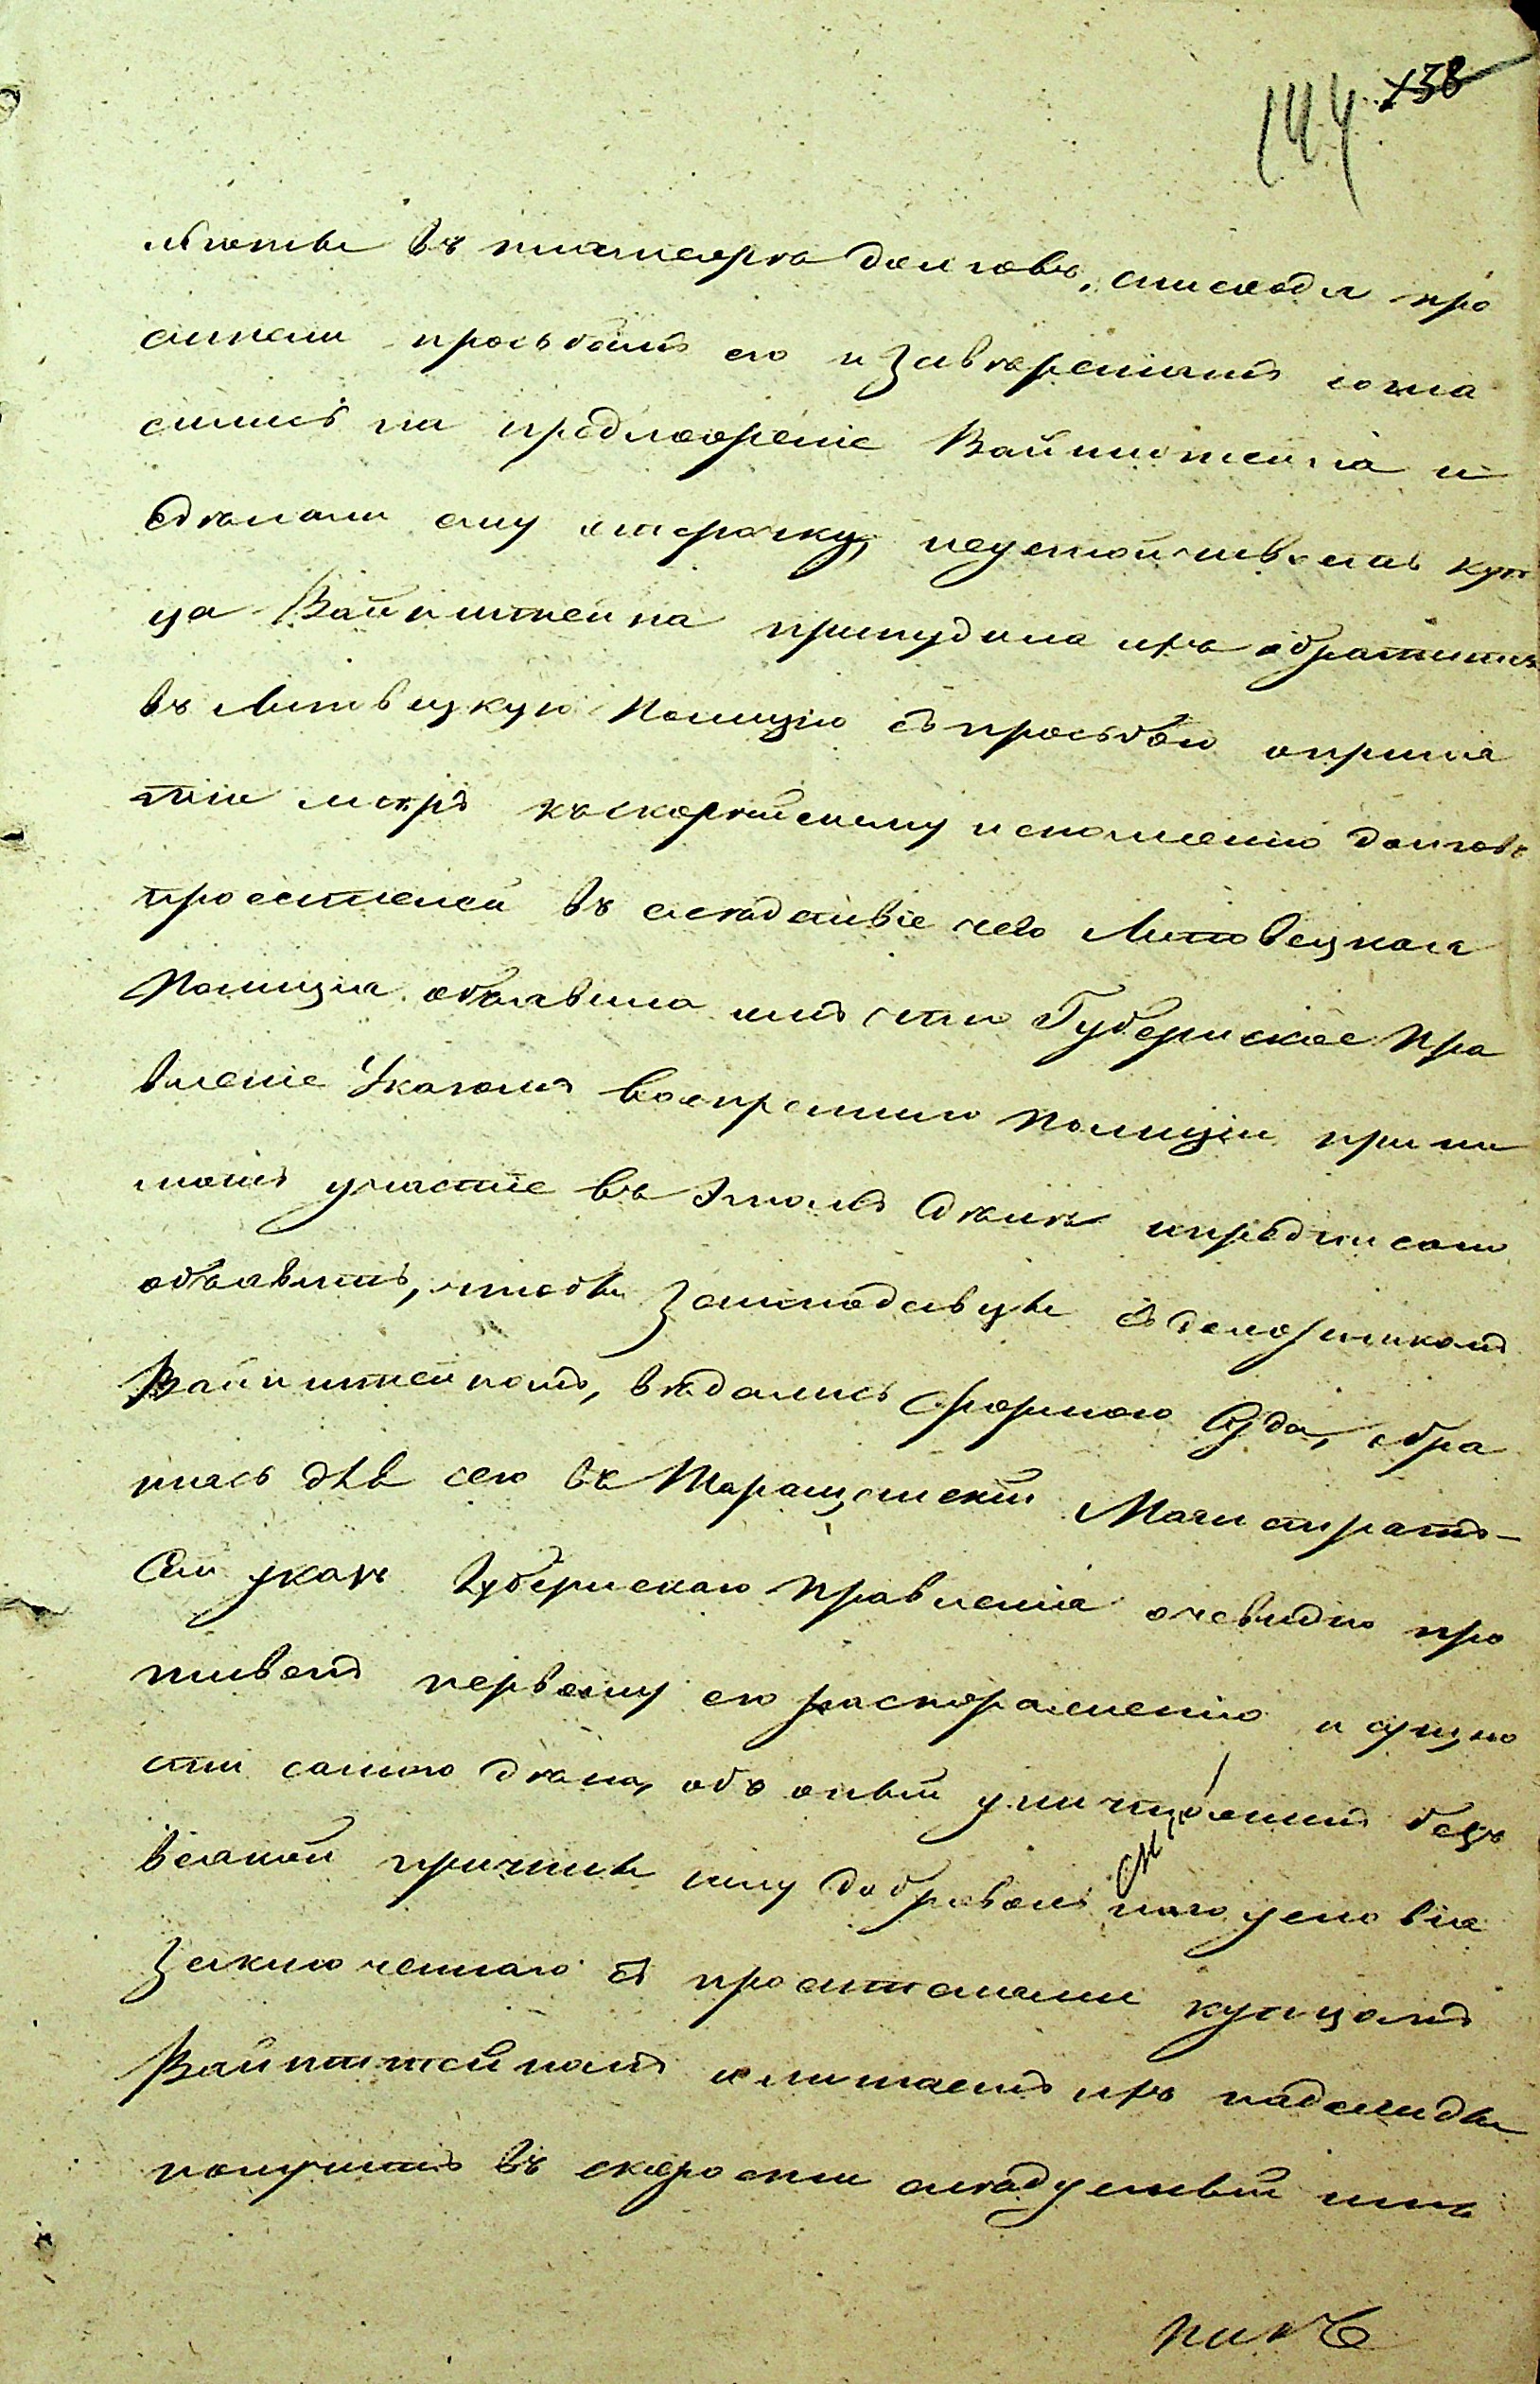 144 138
льготы въ платежѣ долговъ, снисходя про
сители просьбамъ его и завѣреніямъ согла
сились на предложеніе Вайнштейна и
сдѣлали ему отсрочку, неустойчивость куп
ца Вайнштейна принудила ихъ обратится
въ Липовецкую Полицію съ просьбою о приня
тіи мѣръ къ скорѣйшему исполненію долговъ
просителей въ слѣдствіе чего Липовецкая
Полиція объявила имъ что Губернское Пра
вленіе Указомъ воспретило Полиціи прини
мать участіе въ этомъ дѣлѣ и предписало
объявить, чтобы заимодавцы съ должникомъ
Вайнштейномъ, вѣдались формою Суда, обра
тясь для сего въ Таращанскій Магистратъ –
Сей указъ Губернскаго Правленія очевидно про
тивенъ первому его распоряженію и сущно
сти самаго дѣла, объ онъ уничтоженіи безъ
всякой причины силу добровольнаго условія
заключеннаго съ просителями купцомъ
Вайнштейномъ и лишаетъ ихъ надежды
получить въ скорости слѣдуемый имъ